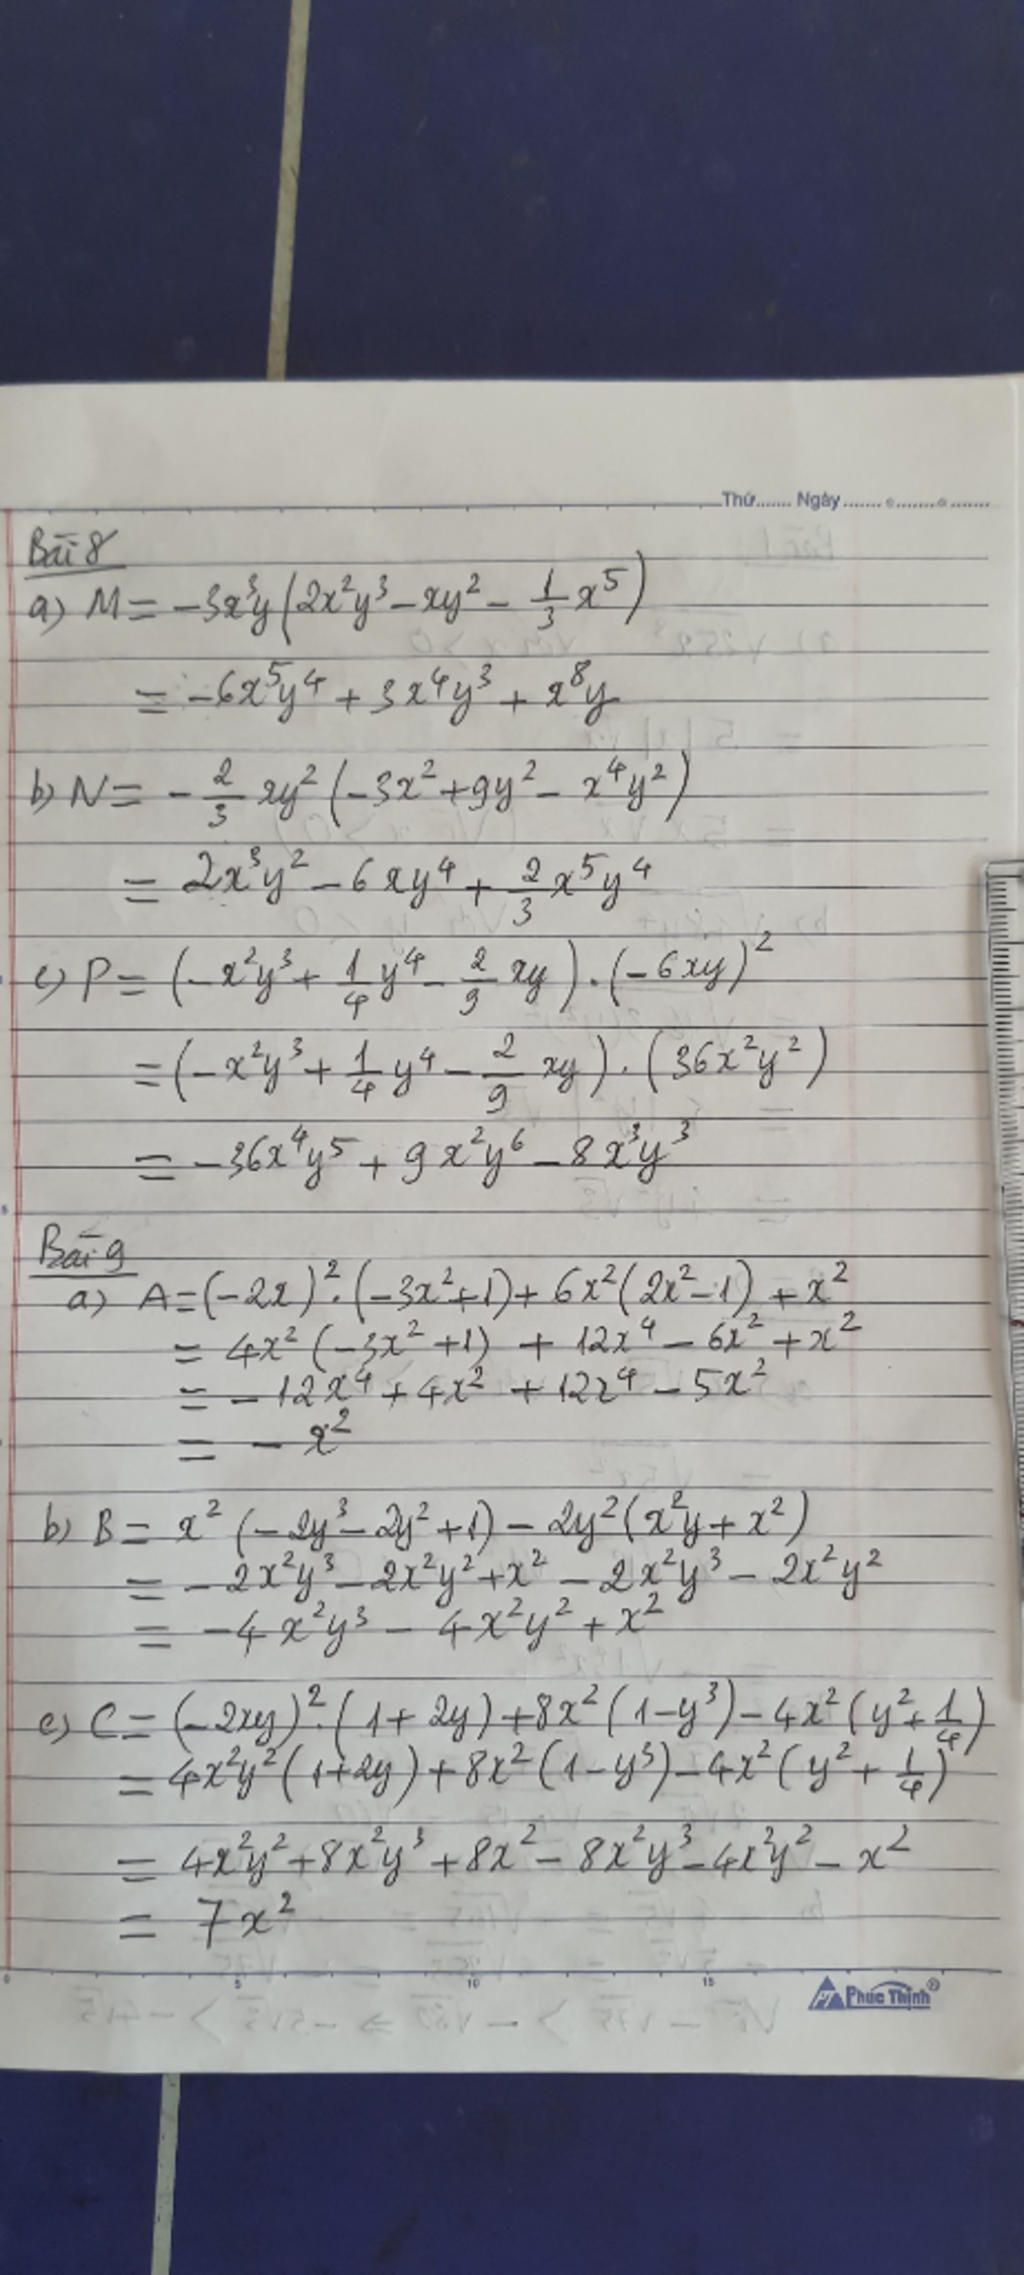 Thứ....... Ngày.......
Bài 8
a) M = -3x³y(2x²y³ - xy² - 1/3 x⁵)
= -6x⁵y⁴ + 3x⁴y³ + x⁸y
b) N = -2/3 xy²(-3x² + 9y² - x⁴y²)
= 2x³y² - 6xy⁴ + 2/3 x⁵y⁴
c) P = (-x²y³ + 1/4 y⁴ - 2/9 xy).(-6xy)²
= (-x²y³ + 1/4 y⁴ - 2/9 xy).(36x²y²)
= -36x⁴y⁵ + 9x²y⁶ - 8x³y³
Bài 9
a) A = (-2x)².(-3x²+1) + 6x²(2x²-1) + x²
= 4x²(-3x²+1) + 12x⁴ - 6x² + x²
= -12x⁴ + 4x² + 12x⁴ - 5x²
= -x²
b) B = x²(-2y³ - 2y² + 1) - 2y²(x²y + x²)
= -2x²y³ - 2x²y² + x² - 2x²y³ - 2x²y²
= -4x²y³ - 4x²y² + x²
c) C = (-2xy)².(1+2y) + 8x²(1-y³) - 4x²(y² + 1/4)
= 4x²y²(1+2y) + 8x²(1-y³) - 4x²(y² + 1/4)
= 4x²y² + 8x²y³ + 8x² - 8x²y³ - 4x²y² - x²
= 7x²
0 5 10 15
Phúc Thịnh®